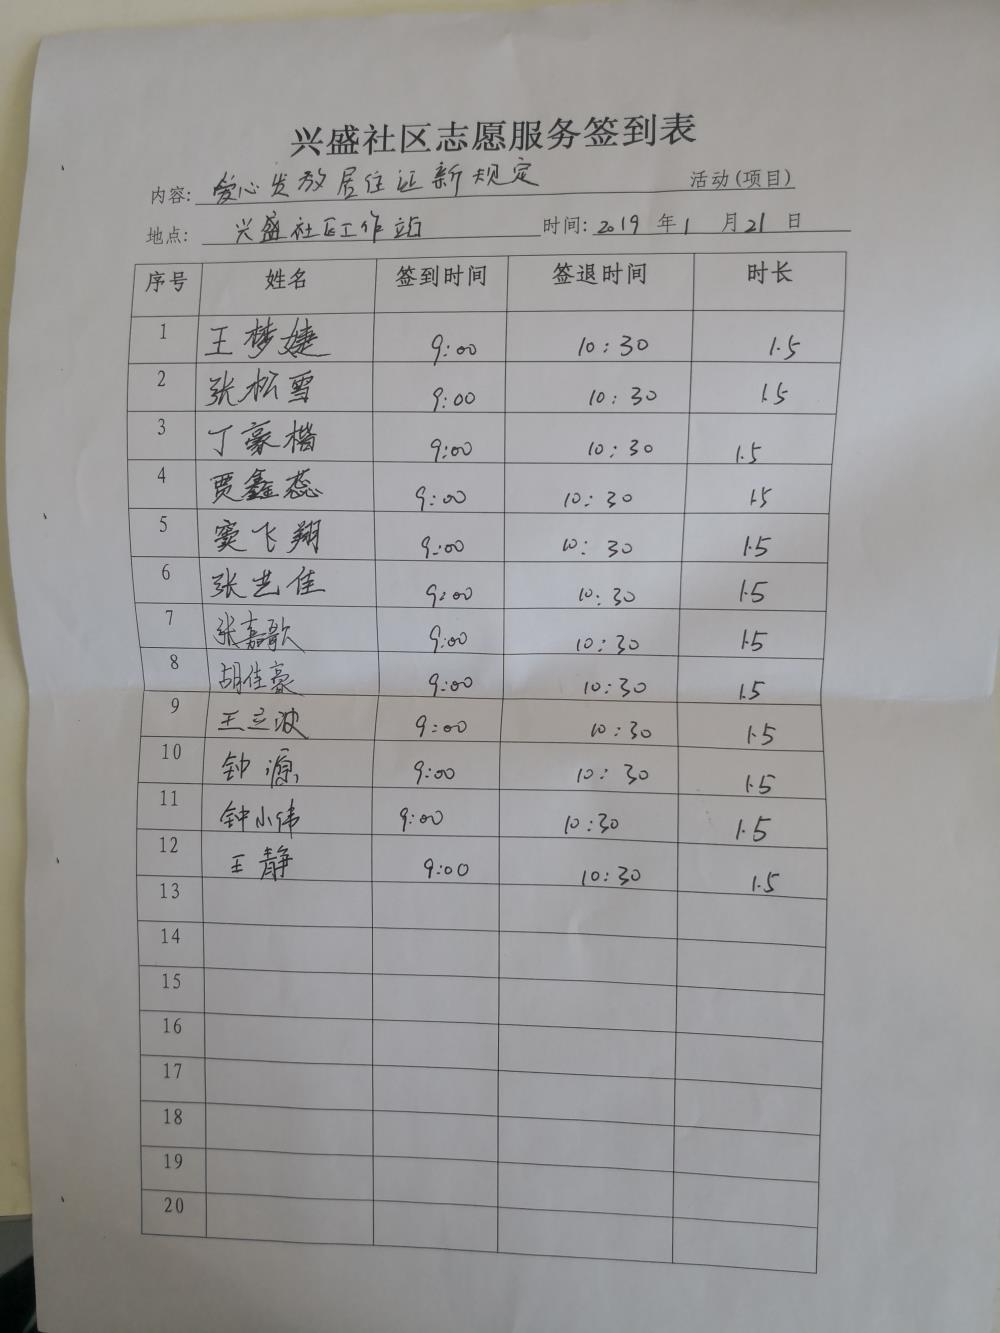 兴盛社区志愿服务签到表
内容: 爱心发放居住证新规定 活动(项目)
地点: 兴盛社区工作站 时间: 2019 年 1 月 21 日
序号 姓名 签到时间 签退时间 时长
1 王梦婕 9:00 10:30 1.5
2 张松雪 9:00 10:30 1.5
3 丁豪楷 9:00 10:30 1.5
4 贾鑫蕊 9:00 10:30 1.5
5 窦飞翔 9:00 10:30 1.5
6 张艺佳 9:00 10:30 1.5
7 张嘉歌 9:00 10:30 1.5
8 胡佳豪 9:00 10:30 1.5
9 王立波 9:00 10:30 1.5
10 钟源 9:00 10:30 1.5
11 钟小伟 9:00 10:30 1.5
12 王静 9:00 10:30 1.5
13
14
15
16
17
18
19
20